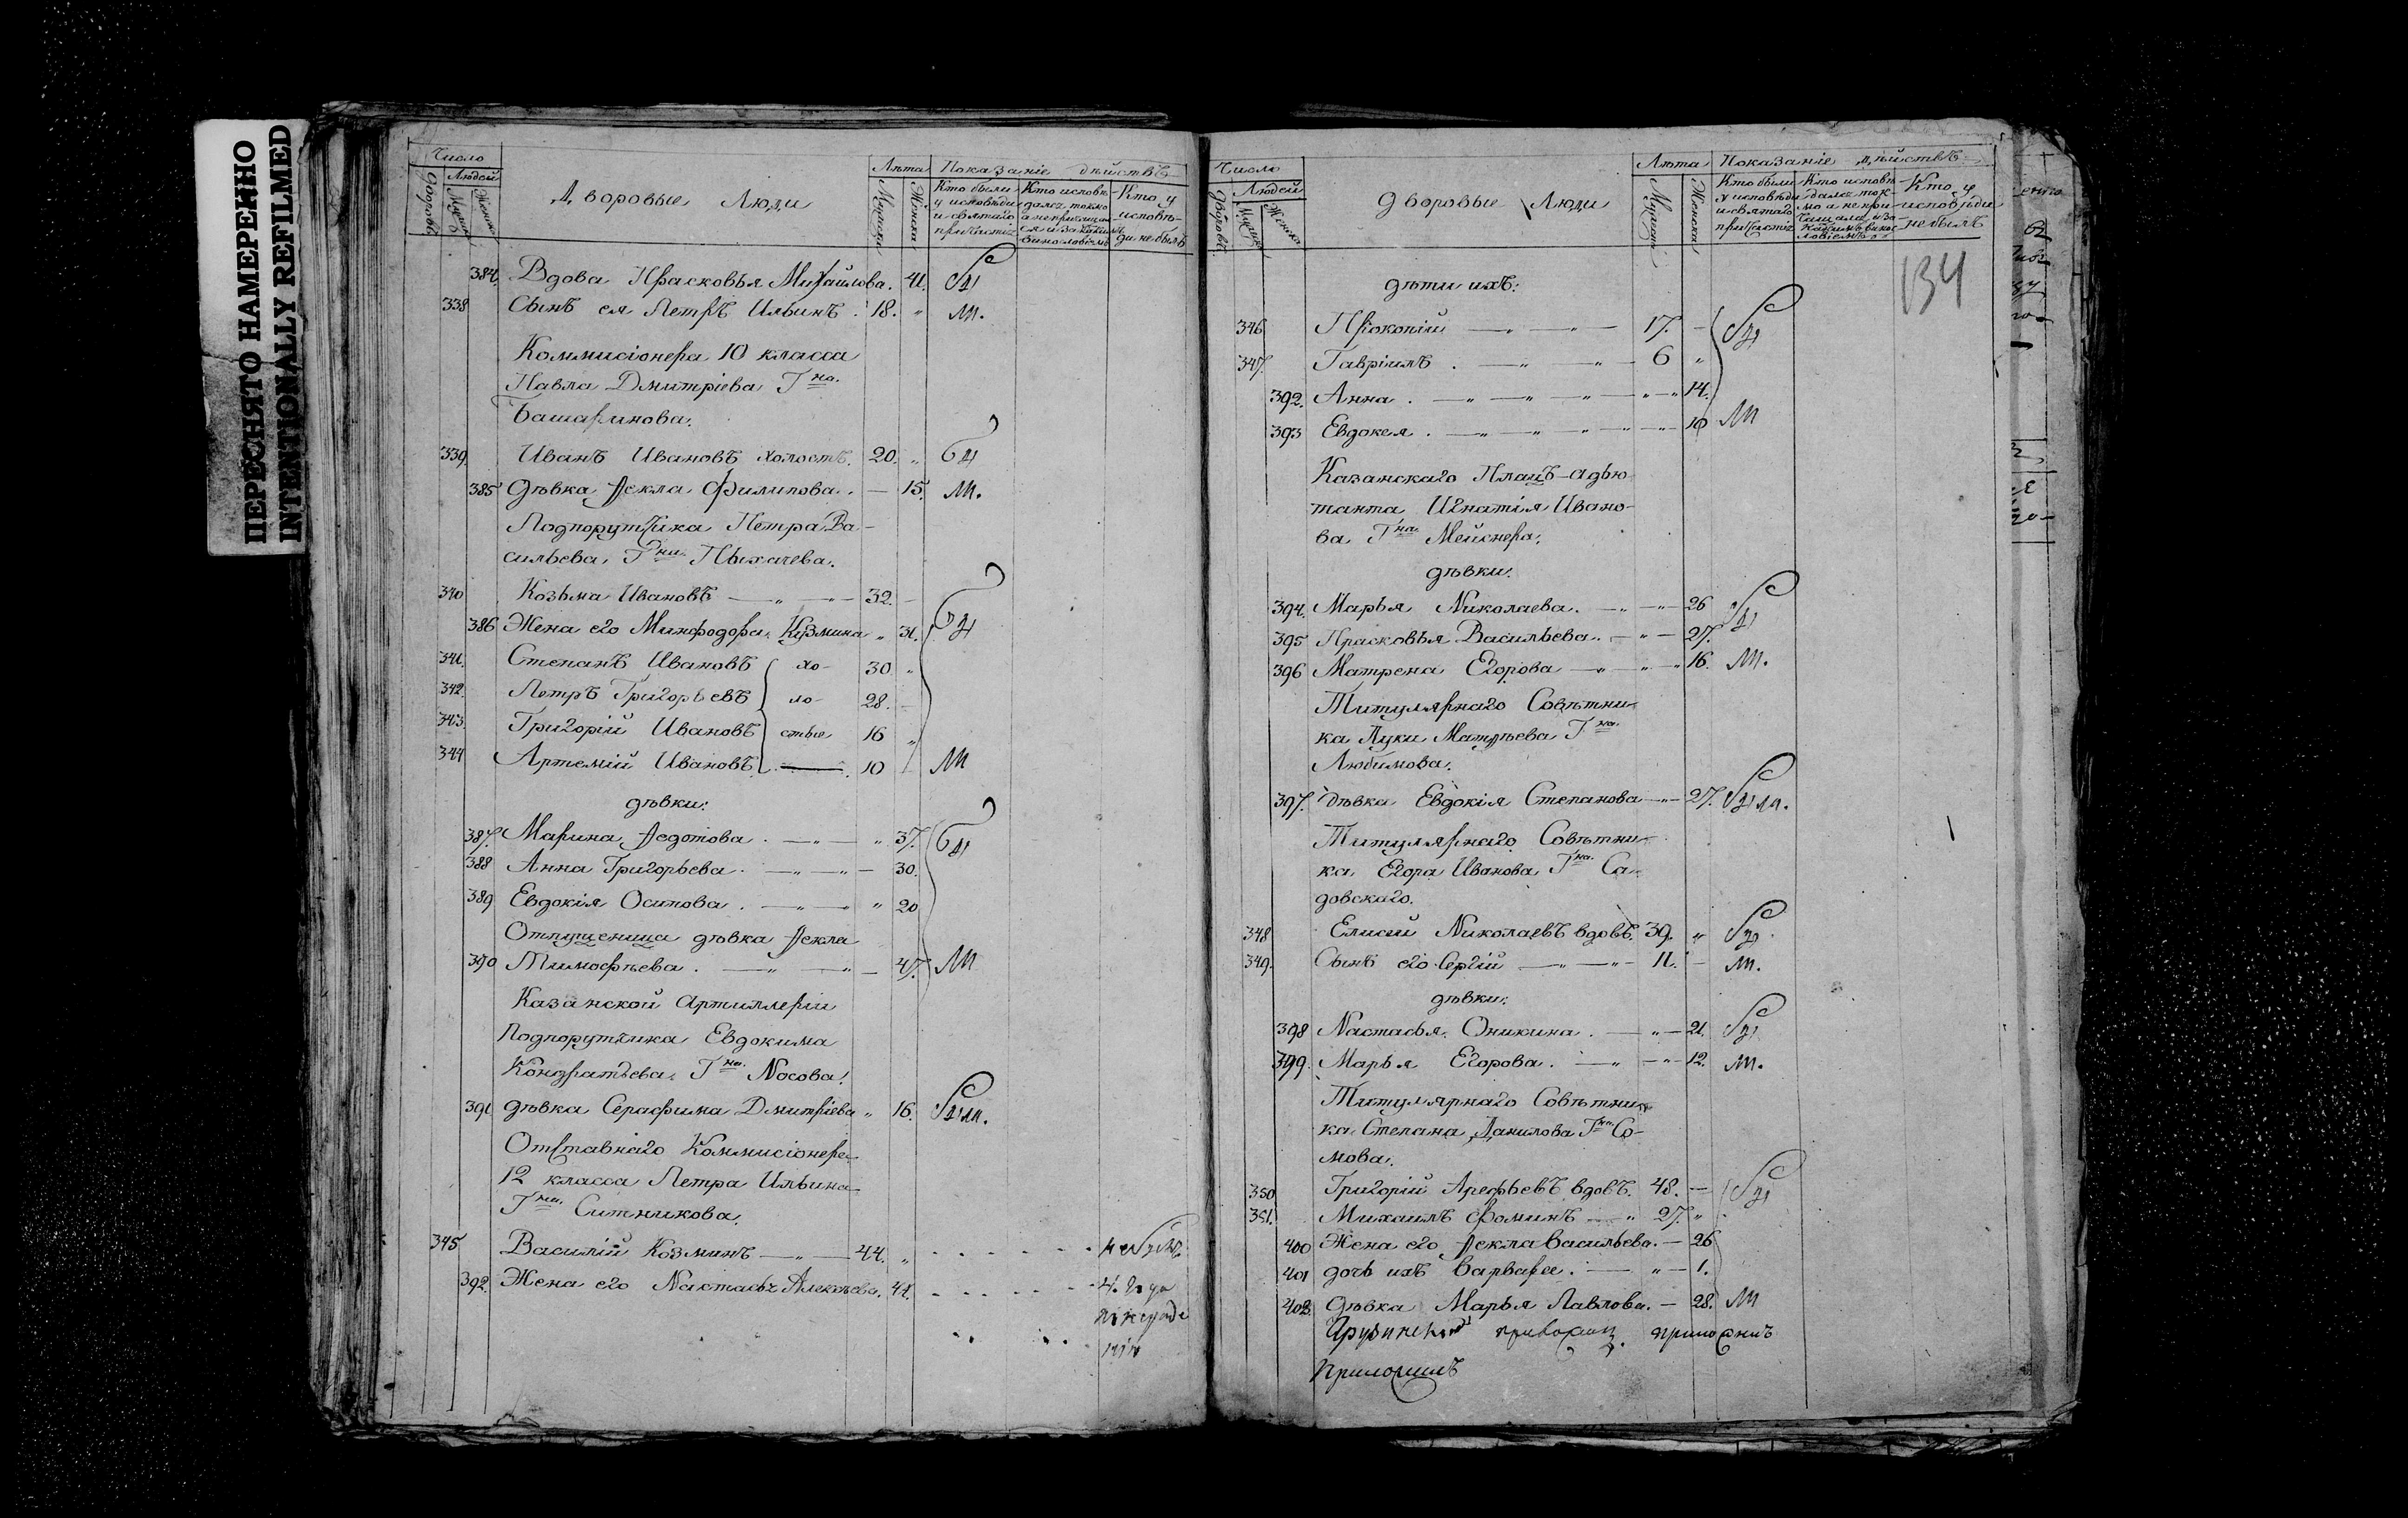 ПЕРЕСНЯТО НАМЕРЕННО
INTENTIONALLY REFILMED
Число
Людей
Дворовъ
Женска
Дворовые Люди
Лѣта
Мужска
Женска
Показаніе дѣйствъ
Кто были у исповѣди и святаго причастія
Кто исповѣдался токмо а не
Кто у исповѣди не былъ
384. Вдова Прасковья Михайлова. 41.
338 Сынъ ея Петръ Ильинъ. 18. "
Коммисіонера 10 класса
Павла Дмитріева Гна.
Башаринова.
339. Иванъ Ивановъ холостъ. 20. "
385 Дѣвка Ѳекла Филипова. — 15.
Подпорутчика Петра Ва-
сильева Гна Пыхачева.
340 Козьма Ивановъ — " — " — 32. —
386 Жена его Минфодора Кузмина " 31.
341. Степанъ Ивановъ хо- 30 "
342. Петръ Григорьевъ ло- 28. —
343. Григорій Ивановъ стые 16 "
344 Артемій Ивановъ 10 —
дѣвки:
387. Марина Ѳедотова. — " — " 37.
388 Анна Григорьева. — " — " — 30.
389 Евдокія Осипова. — " — " " 20
Отпущеница дѣвка Ѳекла
390 Тимофѣева. — " — " — 47.
Казанской Артиллеріи
Подпорутчика Евдокима
Кондратьева Гна. Носова.
391 дѣвка Серафима Дмитріева " 16.
Отставнаго Коммисіонера
12 класса Петра Ильина
Гна. Ситникова.
345 Василій Козминъ — " — 44. "
392. Жена его Настасья Алексѣева. 41.
Число
Людей
Дворовъ
Женска
Дворовые Люди
Лѣта
Мужска
Женска
Показаніе дѣйствъ
Кто были у исповѣди и святаго причастія
Кто исповѣдался токмо а не
Кто у исповѣди не былъ
134
дѣти ихъ:
346 Прокопій — " — " — 17. —
347. Гавріилъ. — " — " — 6 "
392. Анна. — " — " — " — " — " 14.
393 Евдокея. — " — " — " — " — " 10
Казанскаго Плацъ-адъю-
танта Игнатія Ивано-
ва Гна Мейснера.
дѣвки.
394. Марья Николаева. — " — " — 26
395 Прасковья Васильева. — " — 27.
396 Матрена Егорова — " — " — " 16.
Титулярнаго Совѣтни-
ка Луки Матвѣева Гна.
Любимова.
397. дѣвка Евдокія Степанова — " — 27.
Титулярнаго Совѣтни-
ка Егора Иванова Гна. Са-
довскаго.
348 Елисей Николаевъ вдовъ. 39. "
349. Сынъ его Сергій — " — " — 11. —
дѣвки.
398 Настасья Оникина. — " — 21.
399. Марья Егорова. — " — " — 12.
Титулярнаго Совѣтни-
ка Степана Данилова Гна. Со-
мова.
350 Григорій Арефьевъ вдовъ. 48. —
351. Михаилъ Фоминъ — " 27. "
400 Жена его Ѳекла Васильева. — 26
401 дочь ихъ Варвара. — " — 1.
402 Дѣвка Марья Павлова. — 28.